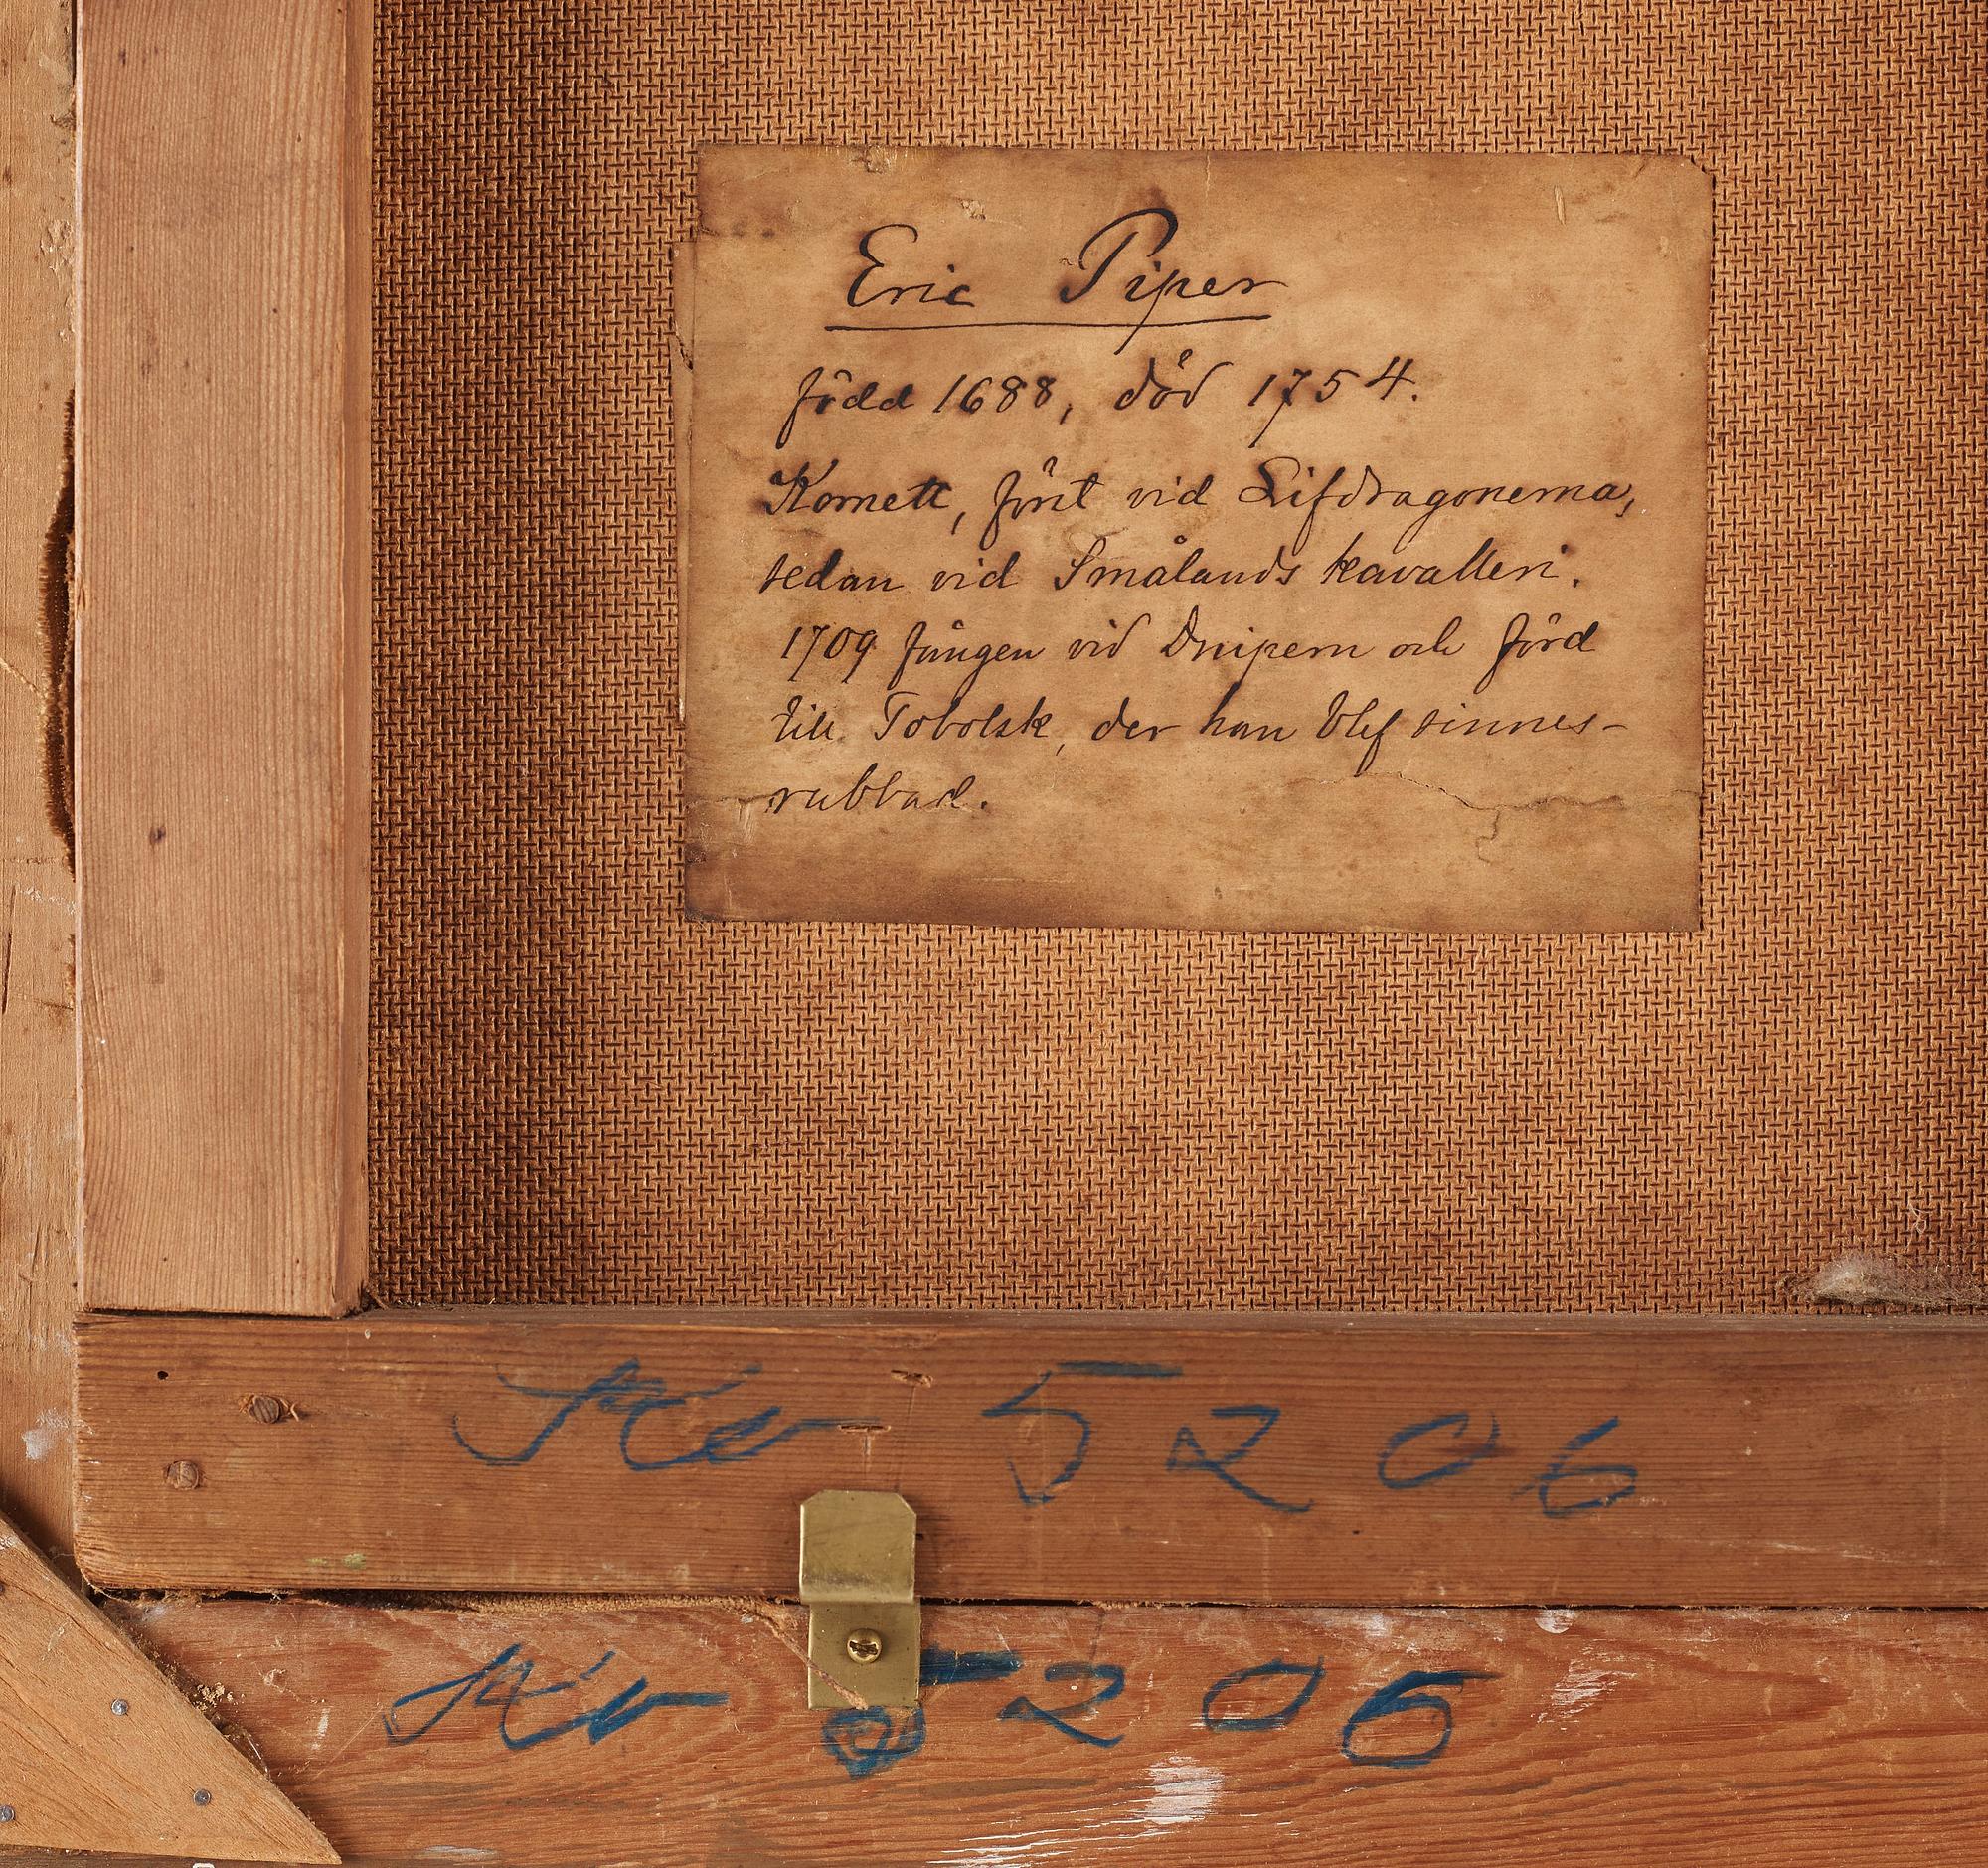 Eric Piper
född 1688, död 1754.
Kornett, först vid Lifdragonerna,
sedan vid Smålands kavalleri.
1709 fången vid Dnipern och förd
till Tobolsk, der han blef sinnes-
rubbad.
5206
5206